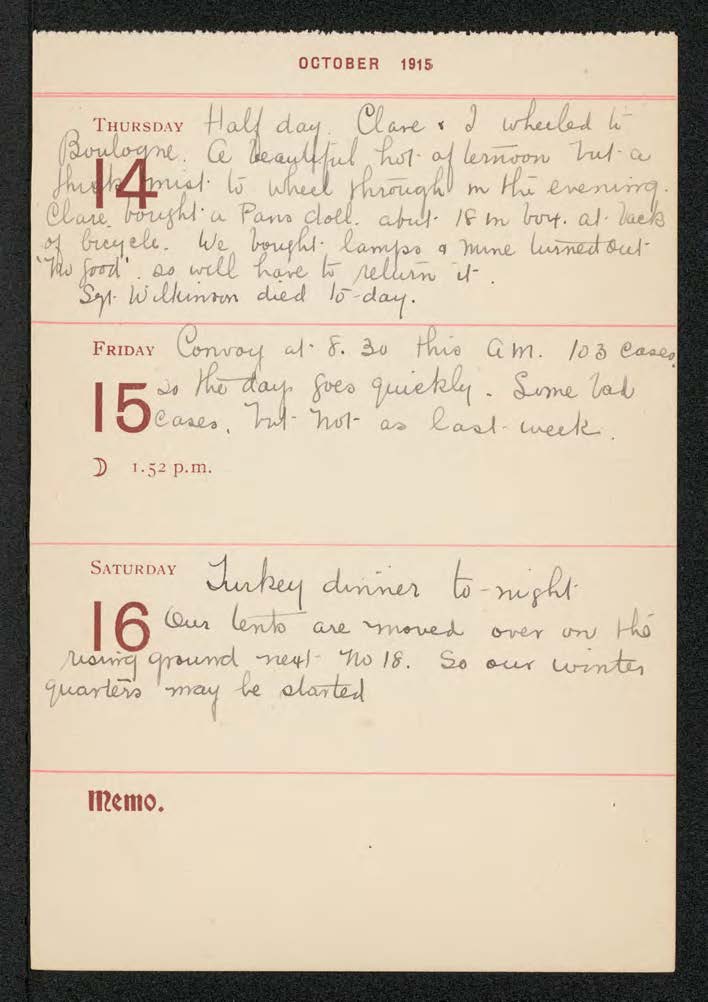 OCTOBER 1915
THURSDAY Half day. Clare & I wheeled to
Boulogne. A beautiful hot afternoon but a
14 thick mist to wheel through in the evening.
Clare bought a Paris doll. about 18 in box. at back
of bicycle. We bought lamps & mine turned out
"No good". so will have to return it.
Sgt. Wilkinson died to-day.
FRIDAY Convoy at 8.30 this A.M. 103 cases,
15 so the day goes quickly. Some bad
cases, but not as last week.
☽ 1.52 p.m.
SATURDAY Turkey dinner to-night
16 Our tents are moved over on the
rising ground next No 18. So our winter
quarters may be started
Memo.